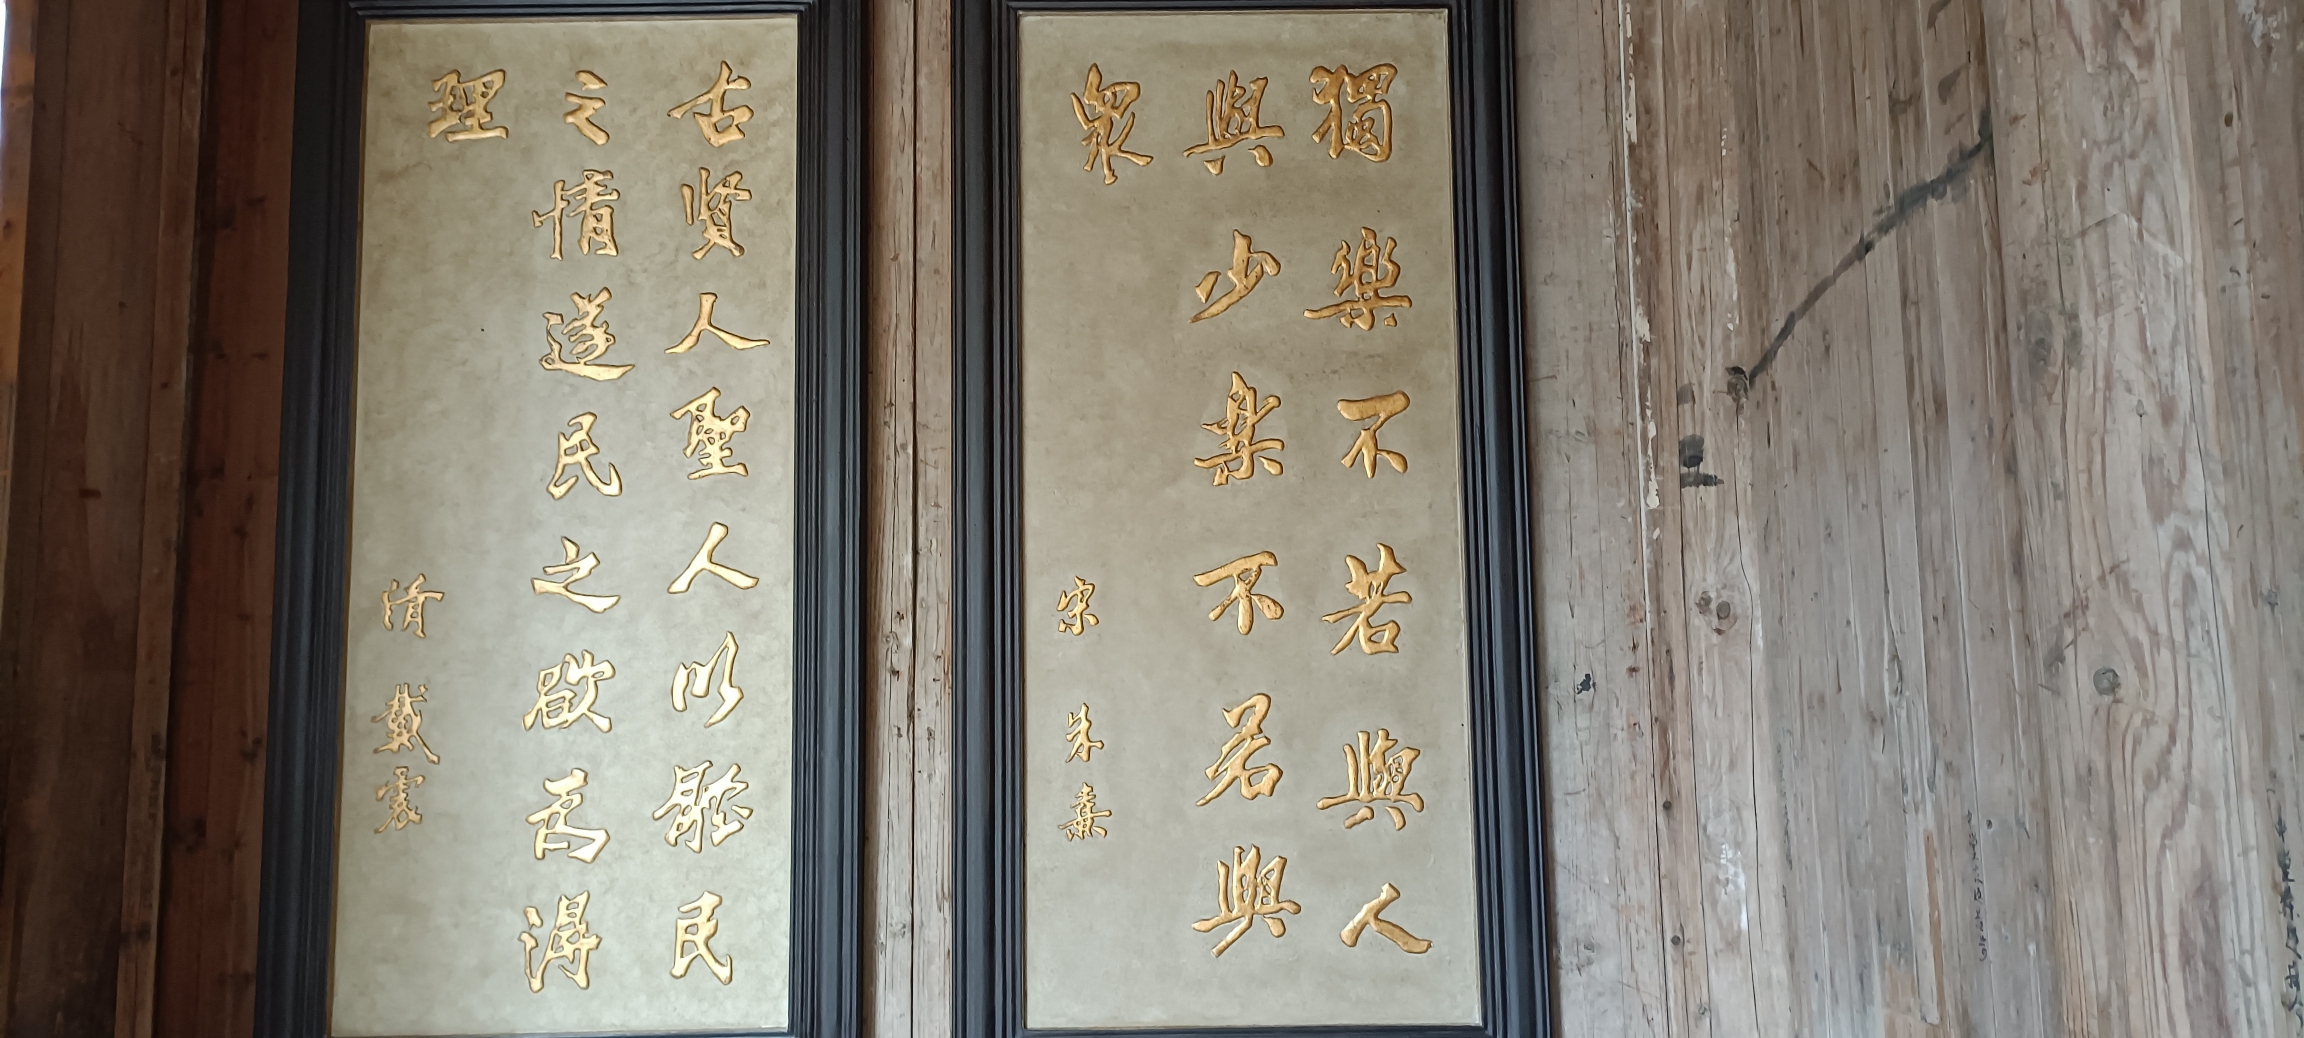 獨樂不若與人
與少樂不若與
衆
宋 朱熹
古賢人聖人以體民
之情遂民之欲為得
理
清 戴震